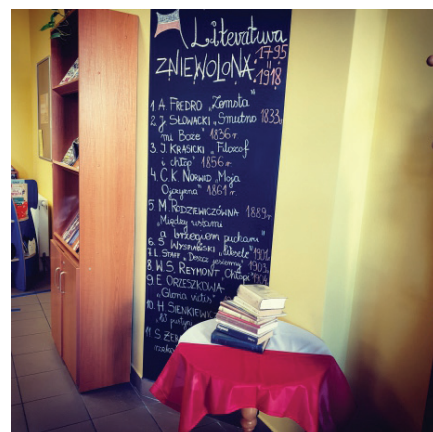 Literatura
1795
ZNIEWOLONA
1918
1 A. FREDRO „Zemsta"
2 J. SŁOWACKI „Smutno 1833r.
mi Boże" 1836r.
3. J. KRASICKI „Filozof
i chłop" 1856r.
4. C.K. NORWID „Moja
Ojczyzna" 1861r.
5. M. RODZIEWICZÓWNA 1889r.
„Między ustami
a brzegiem pucharu"
6. S WYSPIAŃSKI „Wesele" 1901
7. L. STAFF „Deszcz jesienny" 1903
8. W.S. REYMONT „Chłopi" 1904
9 E. ORZESZKOWA
„Gloria victis"
10. H SIENKIEWICZ
„W pustyni
11. S ŻER